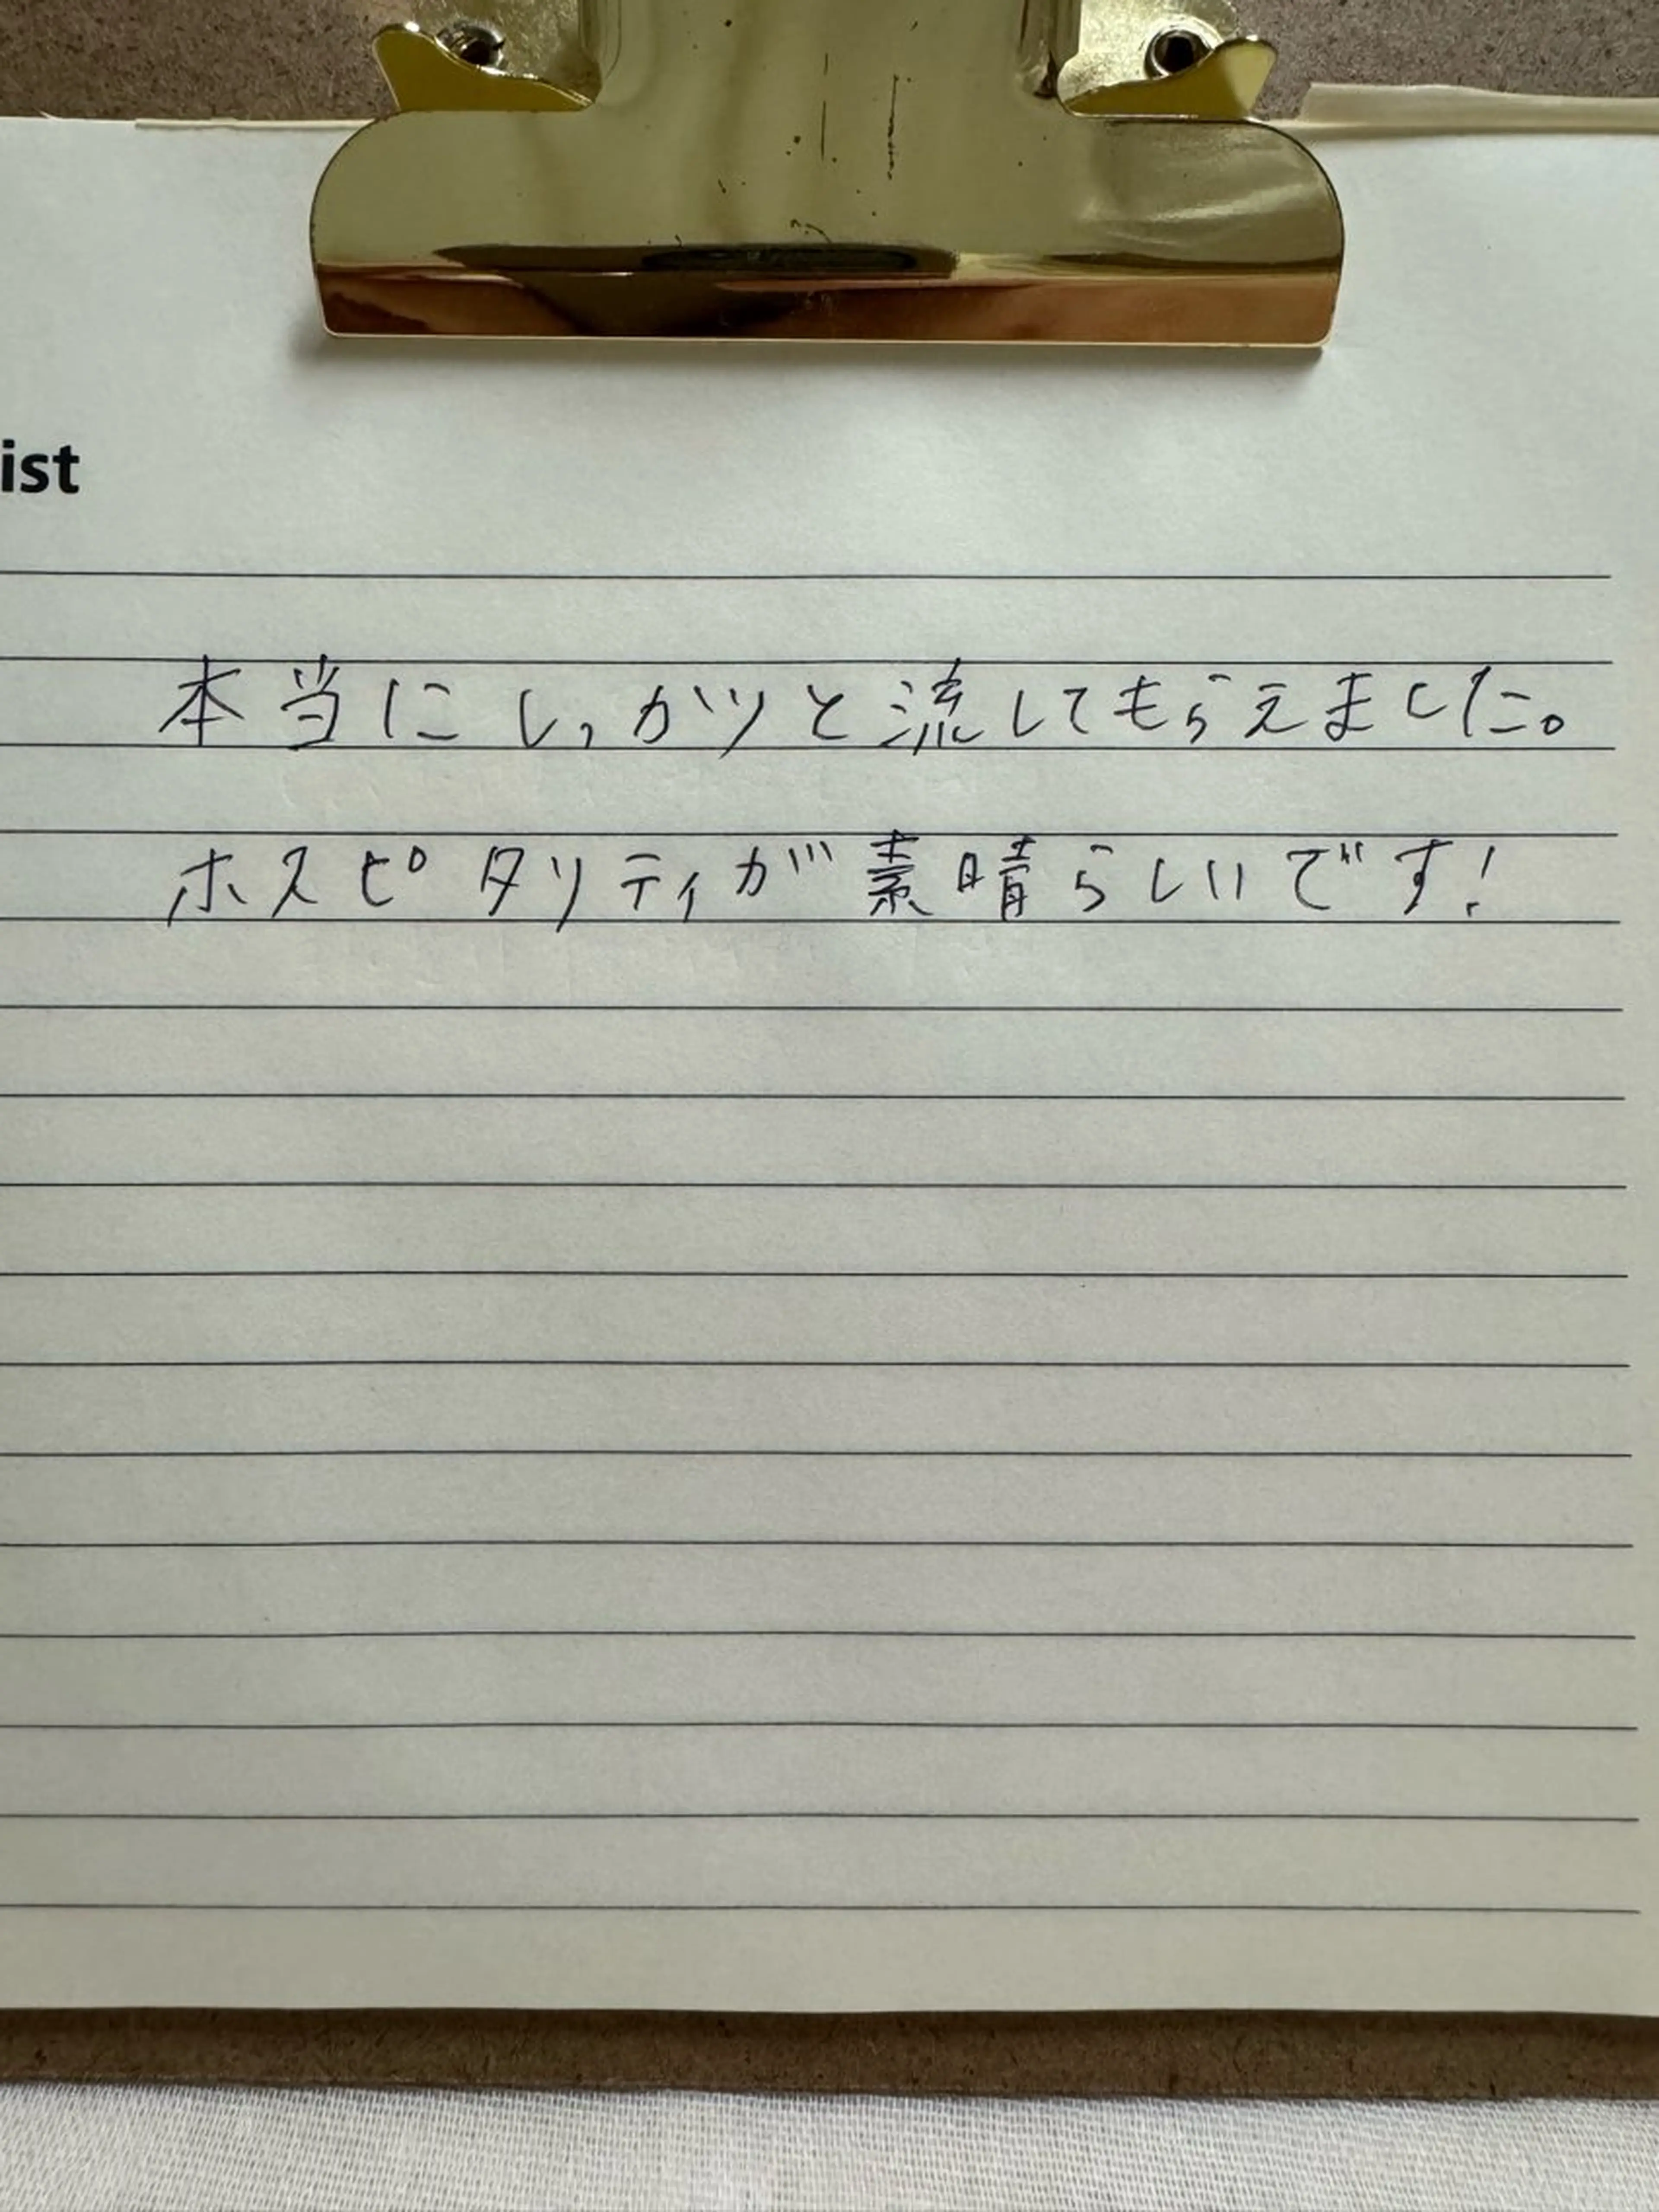 ist
本当にしっかりと流してもらえました。
ホスピタリティが素晴らしいです!